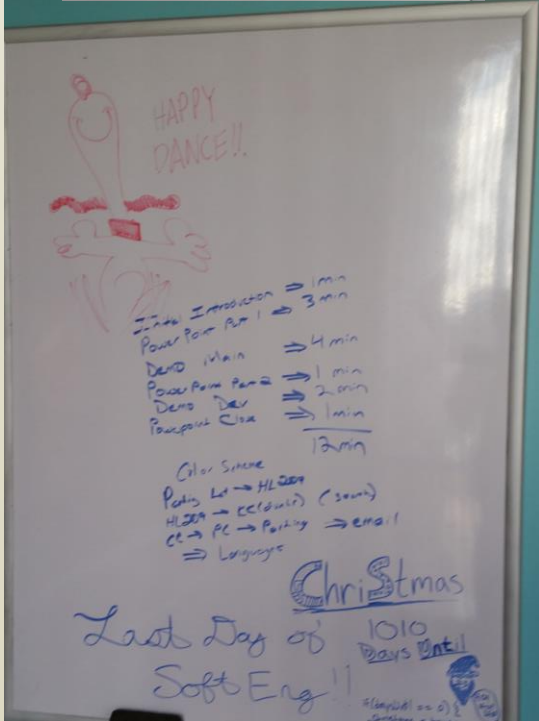 HAPPY
DANCE!!
Initial Introduction ⇒ 1min
PowerPoint Part 1 ⇒ 3 min
Demo Main ⇒ 4 min
PowerPoint Part 2 ⇒ 1 min
Demo Dev ⇒ 2 min
Powerpoint Close ⇒ 1min
12min
Color Scheme
Parking Lot → HL209
HL209 → CC
CC → PC → Parking ⇒ email
⇒ Languages
ChriStmas
1010
Days Until
Last Day of
Soft Eng!!